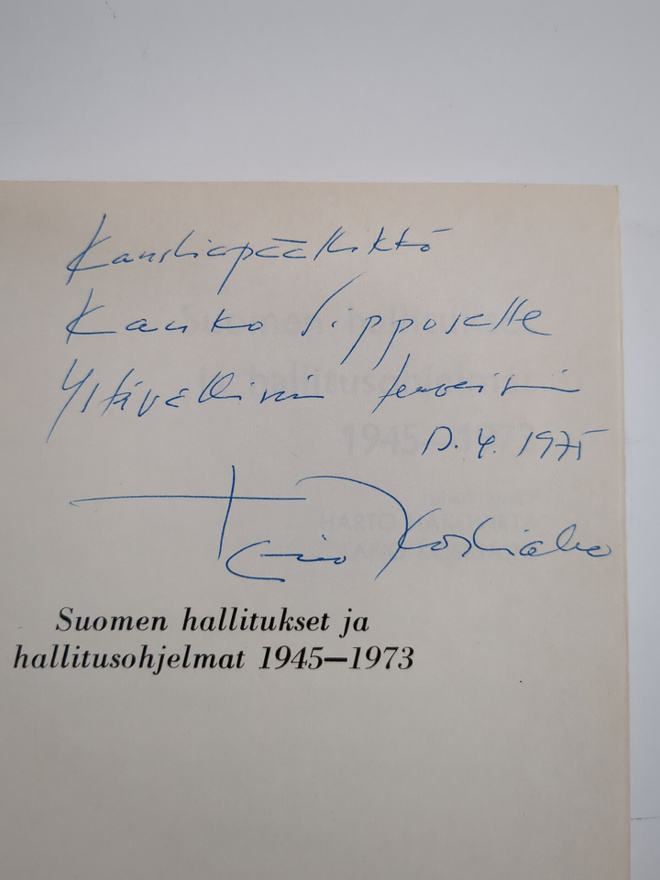 Kansliapäällikkö
Kauko Sipposelle
Ystävällisin terveisin
D. 4. 1975
Koskiaho
Suomen hallitukset ja
hallitusohjelmat 1945—1973